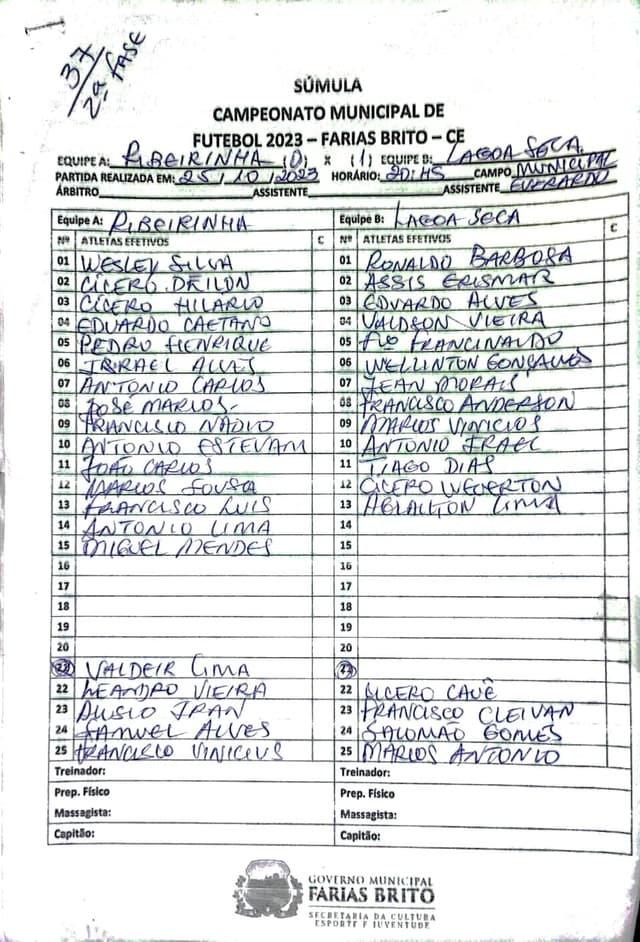 37/
2ª FASE
SÚMULA
CAMPEONATO MUNICIPAL DE
FUTEBOL 2023 – FARIAS BRITO – CE
EQUIPE A: RIBEIRINHA (0) X (1) EQUIPE B: LAGOA SECA
PARTIDA REALIZADA EM: 25/10/2023 HORÁRIO: 20:45 CAMPO MUNICIPAL
ÁRBITRO ASSISTENTE ASSISTENTE EVERARDO
Equipe A: RIBEIRINHA Equipe B: LAGOA SECA C
Nº ATLETAS EFETIVOS C Nº ATLETAS EFETIVOS
01 WESLEY SILVA 01 RONALDO BARBOSA
02 CÍCERO DEILON 02 ASSIS ERISMAR
03 CÍCERO HILARIO 03 EDUARDO ALVES
04 EDUARDO CAETANO 04 VALDSON VIEIRA
05 PEDRO HENRIQUE 05 Fco FRANCINALDO
06 ISRAEL ALVES 06 WELLINTON GONÇALVES
07 ANTONIO CARLOS 07 JEAN MORAIS
08 JOSÉ MARCOS 08 FRANCISCO ANDERSON
09 FRANCISCO NÁDIO 09 MARCOS VINICIOS
10 ANTONIO ESTEVAM 10 ANTONIO ISRAEL
11 JOÃO CARLOS 11 TIAGO DIAS
12 MARCOS SOUSA 12 CÍCERO WEVERTON
13 FRANCISCO LUIS 13 LIMA
14 ANTONIO LIMA 14
15 MIGUEL MENDES 15
16 16
17 17
18 18
19 19
20 20
VALDEIR LIMA
22 LEANDRO VIEIRA 22 CICERO CAUÊ
23 IRAN 23 FRANCISCO CLEIVAN
24 SAMUEL ALVES 24 SALOMÃO GOMES
25 FRANCISCO VINICIUS 25 MARCOS ANTONIO
Treinador: Treinador:
Prep. Físico Prep. Físico
Massagista: Massagista:
Capitão: Capitão:
GOVERNO MUNICIPAL
FARIAS BRITO
SECRETARIA DA CULTURA
ESPORTE E JUVENTUDE